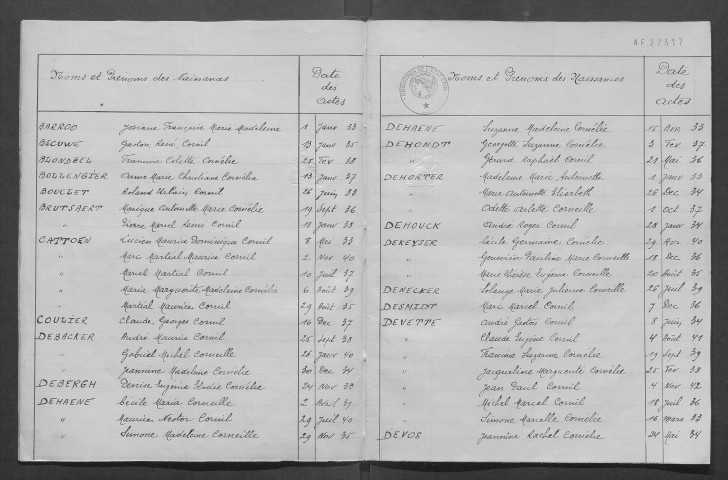 AF 22517
Noms et Prenoms des Naissances Date des actes
BARROO Josiane Françoise Marie Madeleine 1 Janv 33
BECUWE Gaston René Cornil 13 Janv 35
BLONDEEL Francine Colette Cornélie 25 Fév 38
BOLLENGIER Anne Marie Christiane Cornélia 13 Janv 37
BOUCLET Roland Urbain Cornil 26 Juin 33
BRUTSAERT Monique Antoinette Marie Cornélie 19 Sept 36
" Pierre Marcel Remi Cornil 18 Janv 38
CATTOEN Lucien Maurice Dominique Cornil 8 Mai 33
" Marc Martial Maurice Cornil 2 Nov 40
" Martial Cornil 10 Juil 37
" Maria Marguerite-Madeleine Cornélie 6 Août 39
" Martial Maurice Cornil 29 Août 35
COULIER Claude, Georges Cornil 16 Dec 37
DEBACKER André Maurice Cornil 25 Sept 38
" Gabriel Michel Corneille 26 Janv 40
" Jeannine Madeleine Cornélie 30 Dec 34
DEBERGH Denise Eugénie Cornélie 24 Nov 33
DEHAENE Cécile Maria Corneille 2 Avril 37
" Maurice Nestor Cornil 29 Juil 40
" Simone Madeleine Corneille 29 Nov 35
Noms et Prenoms des Naissances Date des actes
DEHAENE Suzanne Madeleine Cornélie 15 Avr 33
DEHONDT Georgette Suzanne Cornélie 3 Fév 37
" Gérard Raphaël Cornil 29 Mai 36
DEHORTER Madeleine Marie Antoinette 1 Janv 33
" Marie Antoinette Elisabeth 26 Dec 34
" Odette Arlette Corneille 1 Oct 37
DEHOUCK André Roger Cornil 28 Janv 34
DEKEYSER Cécile Germaine Cornélie 29 Nov 40
" Geneviève Pauline Marie Corneille 18 Dec 36
" Marie Thérèse Eugénie Corneille 20 Août 35
DENECKER Solange Marie Julienne Corneille 26 Juil 39
DESMIDT Marc Marcel Cornil 7 Dec 36
DEVETTE André Gaston Cornil 8 Juin 34
" Claude Eugène Cornil 4 Août 41
" Francine Suzanne Cornélie 19 Sept 39
" Jacqueline Marguerite Cornélie 25 Fév 38
" Jean Paul Cornil 4 Nov 42
" Michel Marcel Cornil 18 Juil 36
" Simone Marcelle Cornélie 16 mars 33
DEVOS Jeannine Rachel Cornélie 24 Mai 34